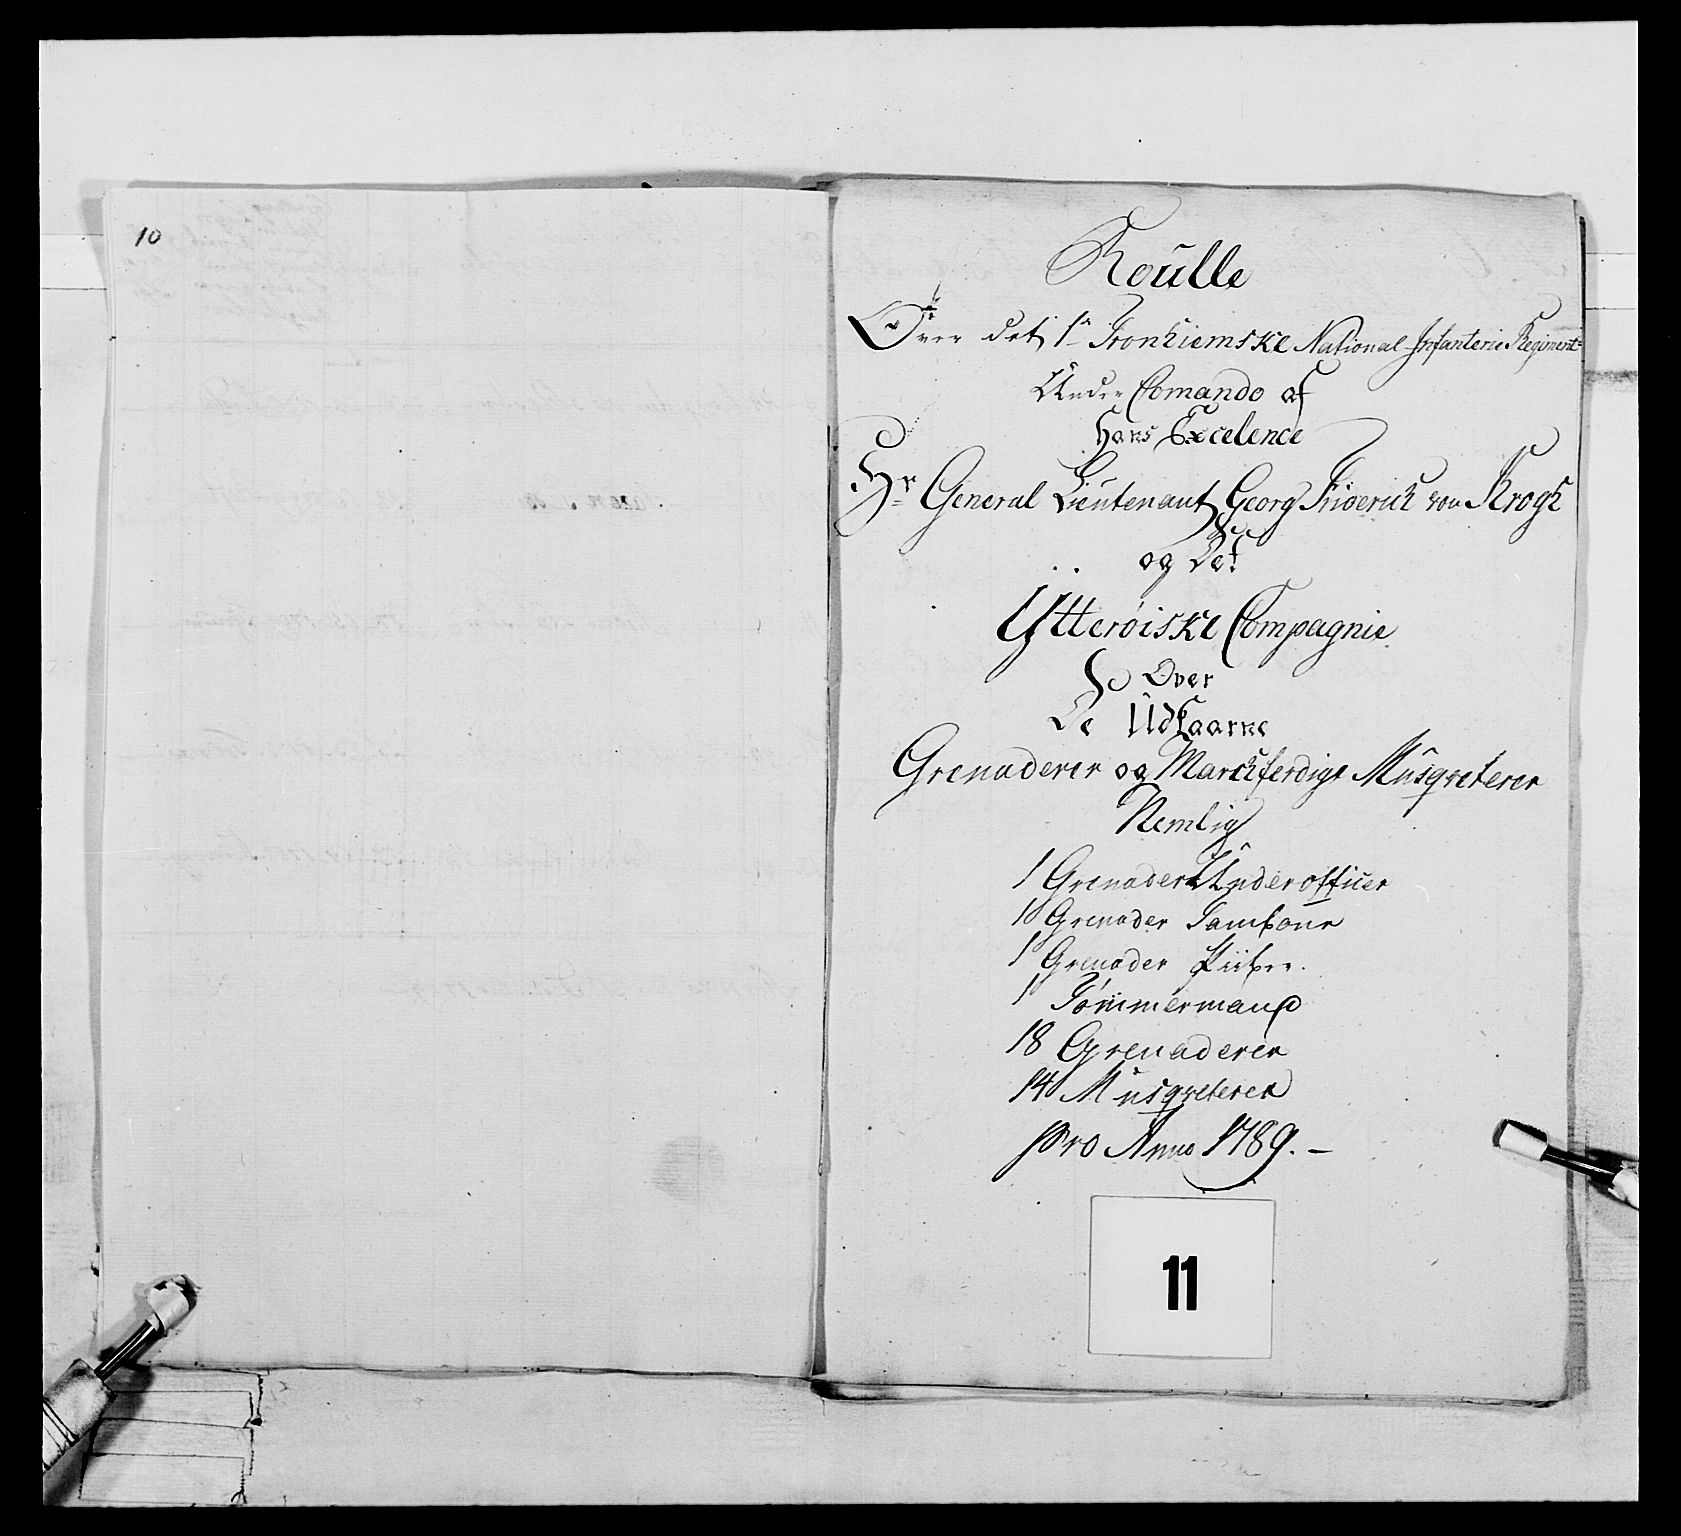 10
Roulle
Over det 1ste Tronhiemske National Infanterie Regiment
Under Comando af
Hans Excelence
Hr General Lieutenant Georg Friderich von Krogh
og Det
Ytterøiske Compagnie
So Over
De Udkaarne
Grenaderer og Marchferdige Musqveterer
Nemlig
1 Grenader Underofficer
1 Grenader Tambour
1 Grenader Piiber.
1 Tømmermand
18 Grenaderer
14 Musqveterer
pro Anno 1789. –
11